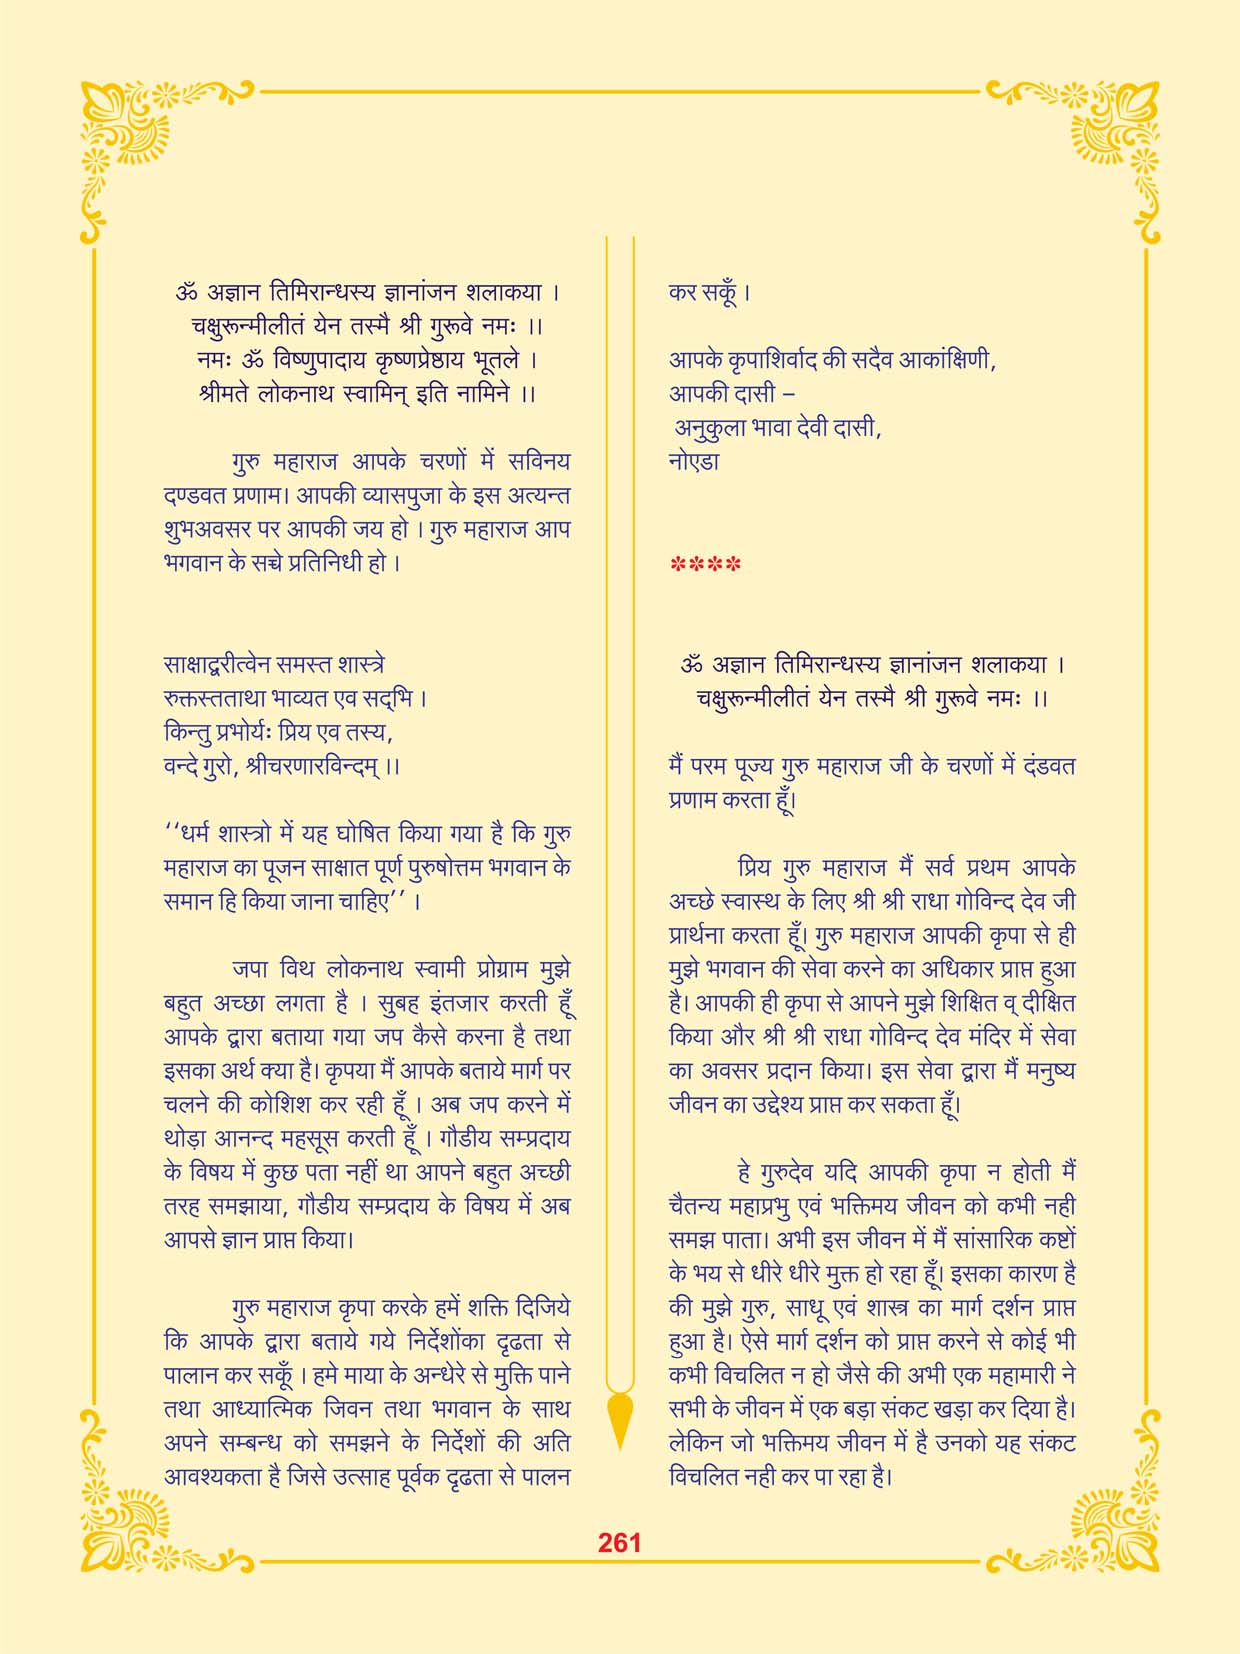 ॐ अज्ञान तिमिरान्धस्य ज्ञानांजन शलाकया ।
चक्षुरून्मीलीतं येन तस्मै श्री गुरूवे नमः ।।
नमः ॐ विष्णुपादाय कृष्णप्रेष्ठाय भूतले ।
श्रीमते लोकनाथ स्वामिन् इति नामिने ।।
गुरु महाराज आपके चरणों में सविनय
दण्डवत प्रणाम। आपकी व्यासपुजा के इस अत्यन्त
शुभअवसर पर आपकी जय हो । गुरु महाराज आप
भगवान के सच्चे प्रतिनिधी हो ।
साक्षाद्धरीत्वेन समस्त शास्त्रे
रुक्तस्तताथा भाव्यत एव सद्‌भि ।
किन्तु प्रभोर्यः प्रिय एव तस्य,
वन्दे गुरो, श्रीचरणारविन्दम् ।।
‘‘धर्म शास्त्रो में यह घोषित किया गया है कि गुरु
महाराज का पूजन साक्षात पूर्ण पुरुषोत्तम भगवान के
समान हि किया जाना चाहिए’’ ।
जपा विथ लोकनाथ स्वामी प्रोग्राम मुझे
बहुत अच्छा लगता है । सुबह इंतजार करती हूँ
आपके द्वारा बताया गया जप कैसे करना है तथा
इसका अर्थ क्या है। कृपया मैं आपके बताये मार्ग पर
चलने की कोशिश कर रही हूँ । अब जप करने में
थोड़ा आनन्द महसूस करती हूँ । गौडीय सम्प्रदाय
के विषय में कुछ पता नहीं था आपने बहुत अच्छी
तरह समझाया, गौडीय सम्प्रदाय के विषय में अब
आपसे ज्ञान प्राप्त किया।
गुरु महाराज कृपा करके हमें शक्ति दिजिये
कि आपके द्वारा बताये गये निर्देशोंका दृढता से
पालान कर सकूँ । हमे माया के अन्धेरे से मुक्ति पाने
तथा आध्यात्मिक जिवन तथा भगवान के साथ
अपने सम्बन्ध को समझने के निर्देशों की अति
आवश्यकता है जिसे उत्साह पूर्वक दृढता से पालन
कर सकूँ ।
आपके कृपाशिर्वाद की सदैव आकांक्षिणी,
आपकी दासी –
अनुकुला भावा देवी दासी,
नोएडा
****
ॐ अज्ञान तिमिरान्धस्य ज्ञानांजन शलाकया ।
चक्षुरून्मीलीतं येन तस्मै श्री गुरूवे नमः ।।
मैं परम पूज्य गुरु महाराज जी के चरणों में दंडवत
प्रणाम करता हूँ।
प्रिय गुरु महाराज मैं सर्व प्रथम आपके
अच्छे स्वास्थ के लिए श्री श्री राधा गोविन्द देव जी
प्रार्थना करता हूँ। गुरु महाराज आपकी कृपा से ही
मुझे भगवान की सेवा करने का अधिकार प्राप्त हुआ
है। आपकी ही कृपा से आपने मुझे शिक्षित व् दीक्षित
किया और श्री श्री राधा गोविन्द देव मंदिर में सेवा
का अवसर प्रदान किया। इस सेवा द्वारा मैं मनुष्य
जीवन का उद्देश्य प्राप्त कर सकता हूँ।
हे गुरुदेव यदि आपकी कृपा न होती मैं
चैतन्य महाप्रभु एवं भक्तिमय जीवन को कभी नही
समझ पाता। अभी इस जीवन में मैं सांसारिक कष्टों
के भय से धीरे धीरे मुक्त हो रहा हूँ। इसका कारण है
की मुझे गुरु, साधू एवं शास्त्र का मार्ग दर्शन प्राप्त
हुआ है। ऐसे मार्ग दर्शन को प्राप्त करने से कोई भी
कभी विचलित न हो जैसे की अभी एक महामारी ने
सभी के जीवन में एक बड़ा संकट खड़ा कर दिया है।
लेकिन जो भक्तिमय जीवन में है उनको यह संकट
विचलित नही कर पा रहा है।
261